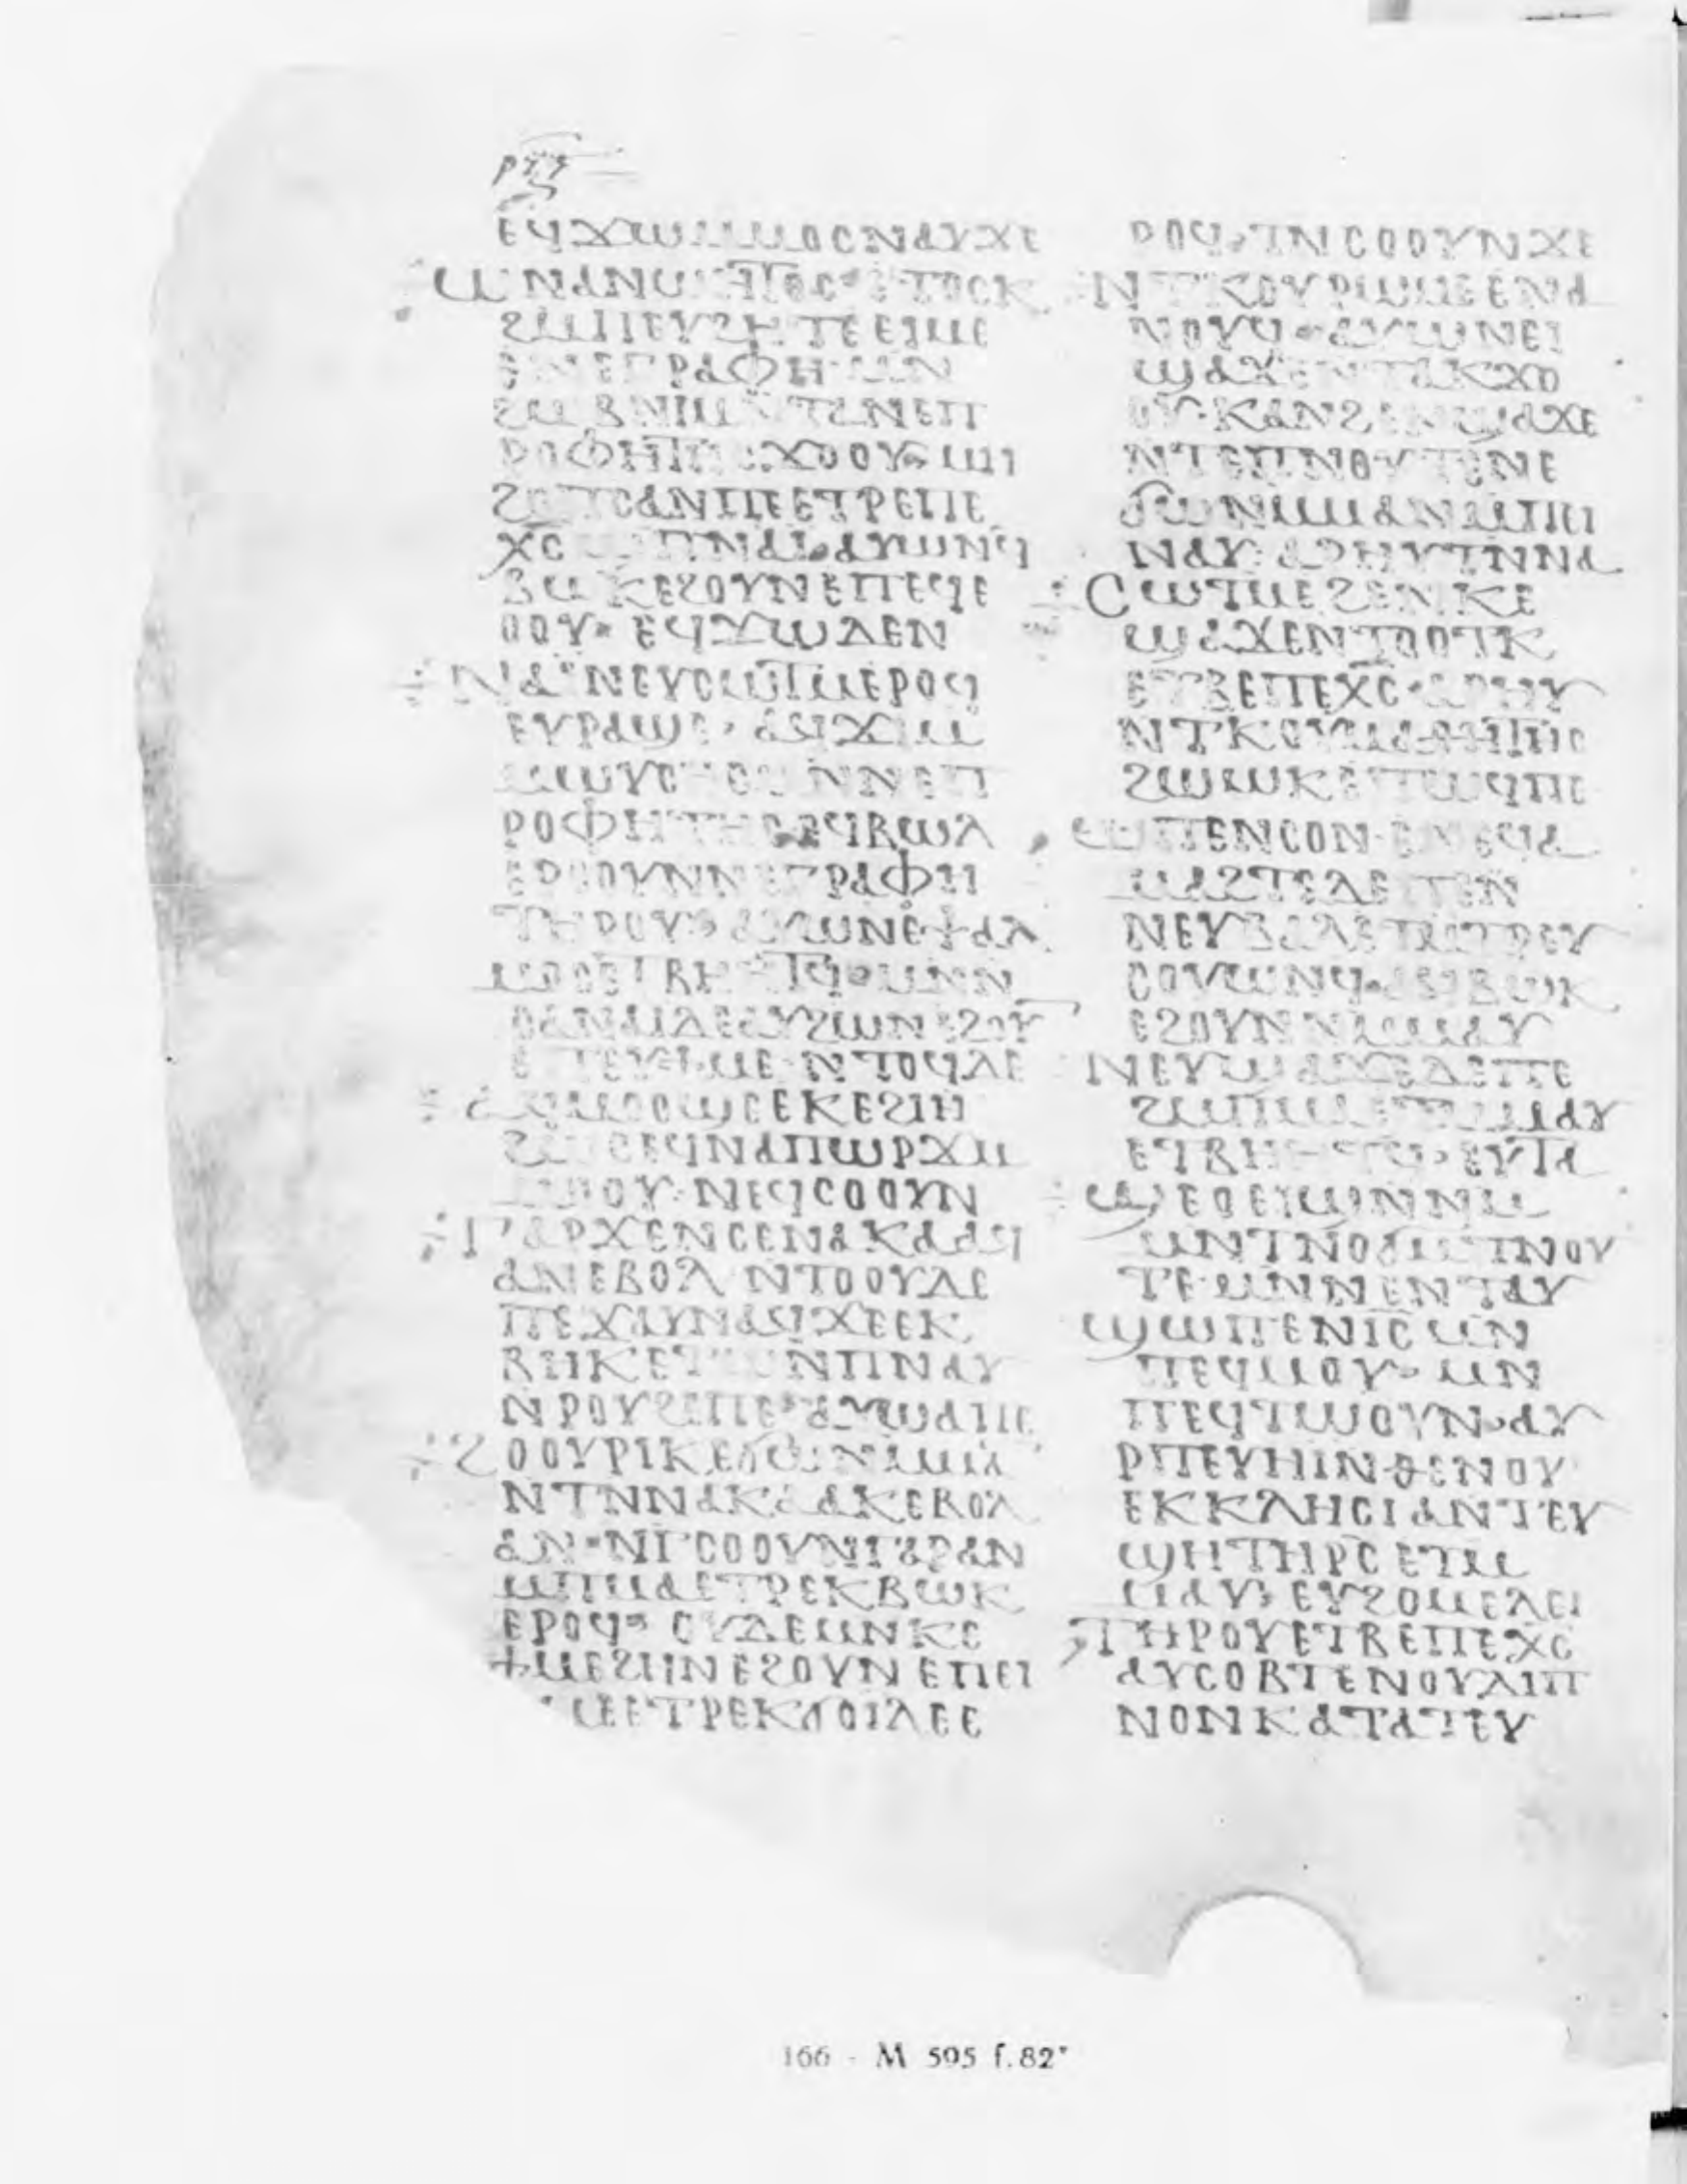 ⲣⲝⲋ
ⲉϥϫⲱⲙⲙⲟⲥⲛⲁⲩϫⲉ
ϩⲙⲡⲉⲩϩⲏⲧⲉⲉⲓⲙⲉ
ⲉⲛⲉⲅⲣⲁⲫⲏ·ⲙⲛ
ϩⲱⲃⲛⲓⲙⲛⲧⲁⲛⲉⲡ
ⲭⲥ ⲛⲁⲓ·ⲁⲩⲱⲛϥ
ⲃⲱⲕⲉϩⲟⲩⲛⲉⲡⲉϥⲉ
ⲟⲟⲩ· ⲉϥϫⲱⲇⲉⲛ
ⲛⲁⲓ ⲛⲉⲩⲥⲱⲧⲙⲉⲣⲟϥ
ⲉⲩⲣⲁϣⲉ· ⲁϥϫⲓⲙ
ⲙⲱⲩⲥⲏⲥⲙⲛⲛⲉⲡ
ⲣⲟⲫⲏⲧⲏⲥ·ⲉϥⲃⲱⲗ
ⲉⲣⲟⲟⲩⲛⲛⲉⲅⲣⲁⲫⲏ
ⲧⲏⲣⲟⲩ·ⲁⲩⲱⲛⲉⲯⲁⲗ
ⲙⲟⲥⲉⲧⲃⲏⲏⲧϥ·ⲙⲛⲛ
ⲥⲁⲛⲁⲓⲇⲉⲁⲩϩⲱⲛⲉϩⲟⲩ
ⲉⲡⲉⲩϯⲙⲉ·ⲛⲧⲟϥⲇⲉ
ⲁϥⲙⲟⲟϣⲉⲉⲕⲉϩⲓⲏ
ϩⲱⲥⲉϥⲛⲁⲡⲱⲣϫⲙ
ⲙⲟⲟⲩ·ⲛⲉϥⲥⲟⲟⲩⲛ
ⲅⲁⲣϫⲉⲛⲥⲉⲛⲁⲕⲁⲁϥ
ⲁⲛⲉⲃⲟⲗ ⲛⲧⲟⲟⲩⲇⲉ
ⲡⲉϫⲁⲩⲛⲁϥϫⲉⲉⲕ
ⲃⲏⲕⲉⲧⲱⲛⲡⲛⲁⲩ
ⲛⲣⲟⲩϩⲉⲡⲉ·ⲁⲩⲱⲁⲡⲉ
ϩⲟⲟⲩⲣⲓⲕⲉϭⲱⲛⲙⲙⲁ
ⲛⲧⲛⲛⲁⲕⲁⲁⲕⲉⲃⲟⲗ
ⲁⲛ·ⲛⲅⲥⲟⲟⲩⲛⲅⲁⲣⲁⲛ
ⲙⲡⲙⲁⲉⲧⲣⲉⲕⲃⲱⲕ
ⲉⲣⲟϥ· ⲟⲩⲇⲉⲙⲛⲕⲉ
ϯⲙⲉϩⲓⲏⲛⲉϩⲟⲩⲛ ⲉⲡⲉⲓ
ⲙⲉⲉⲧⲣⲉⲕϭⲟⲓⲗⲉⲉ
ⲣⲟϥ·ⲧⲛⲥⲟⲟⲩⲛϫⲉ
ⲛⲧⲕⲟⲩⲣⲱⲙⲉⲉⲛⲁ
ⲛⲟⲩϥ·ⲁⲩⲱⲛⲉⲓ
ϣⲁϫⲉⲛⲧⲁⲕϫⲟ
ⲟⲩ·ⲕⲁⲛϩⲉⲛϣⲁϫⲉ
ⲛⲧⲉⲡⲛⲟⲩⲧⲉⲛⲉ
ϭⲱⲛⲙⲙⲁⲛⲙⲡⲓ
ⲛⲁⲩ·ⲁⲣⲏⲩⲧⲛⲛⲁ
ⲥⲱⲧⲙⲉϩⲉⲛⲕⲉ
ϣⲁϫⲉⲛⲧⲟⲟⲧⲕ
ⲉⲧⲃⲉⲡⲉⲭⲥ·ⲁⲣⲏⲩ
ⲛⲧⲕⲟⲩⲙⲁⲑⲏⲧⲏⲥ
ϩⲱⲱⲕⲉⲡⲱϥⲡⲉ
ⲱⲡⲉⲛⲥⲟⲛ·ⲉⲛⲉϥⲁ
ⲙⲁϩⲧⲉⲇⲉⲡⲉⲛ
ⲛⲉⲩⲃⲁⲗⲉⲧⲙⲧⲣⲉⲩ
ⲥⲟⲩⲱⲛϥ·ⲁϥⲃⲱⲕ
ⲉϩⲟⲩⲛⲛⲙⲙⲁⲩ
ⲛⲉⲩϣⲁϫⲉⲇⲉⲡⲉ
ϩⲙⲡⲙⲁⲉⲧⲙⲙⲁⲩ
ⲉⲧⲃⲏⲏⲧϥ·ⲉⲩⲧⲁ
ϣⲉⲟⲉⲓϣⲛⲛⲙ
ⲙⲛⲧⲛⲟϭⲙⲡⲛⲟⲩ
ⲧⲉ·ⲙⲛⲛⲉⲛⲧⲁⲩ
ϣⲱⲡⲉⲛⲓⲥ ⲙⲛ
ⲡⲉϥⲙⲟⲩ·ⲙⲛ
ⲡⲉϥⲧⲱⲟⲩⲛ·ⲁⲩ
ⲣⲡⲉⲩⲏⲓⲛⲑⲉⲛⲟⲩ
ⲉⲕⲕⲗⲏⲥⲓⲁⲛⲧⲉⲩ
ϣⲏⲧⲏⲣⲥ ⲉⲧⲙ
ⲙⲁⲩ· ⲉⲩϩⲟⲙⲉⲗⲉⲓ
ⲧⲏⲣⲟⲩⲉⲧⲃⲉⲡⲉⲭⲥ
ⲁⲩⲥⲟⲃⲧⲉⲛⲟⲩⲇⲓⲡ
ⲛⲟⲛⲕⲁⲧⲁⲧⲉⲩ
166 - M 595 f.82ᵛ